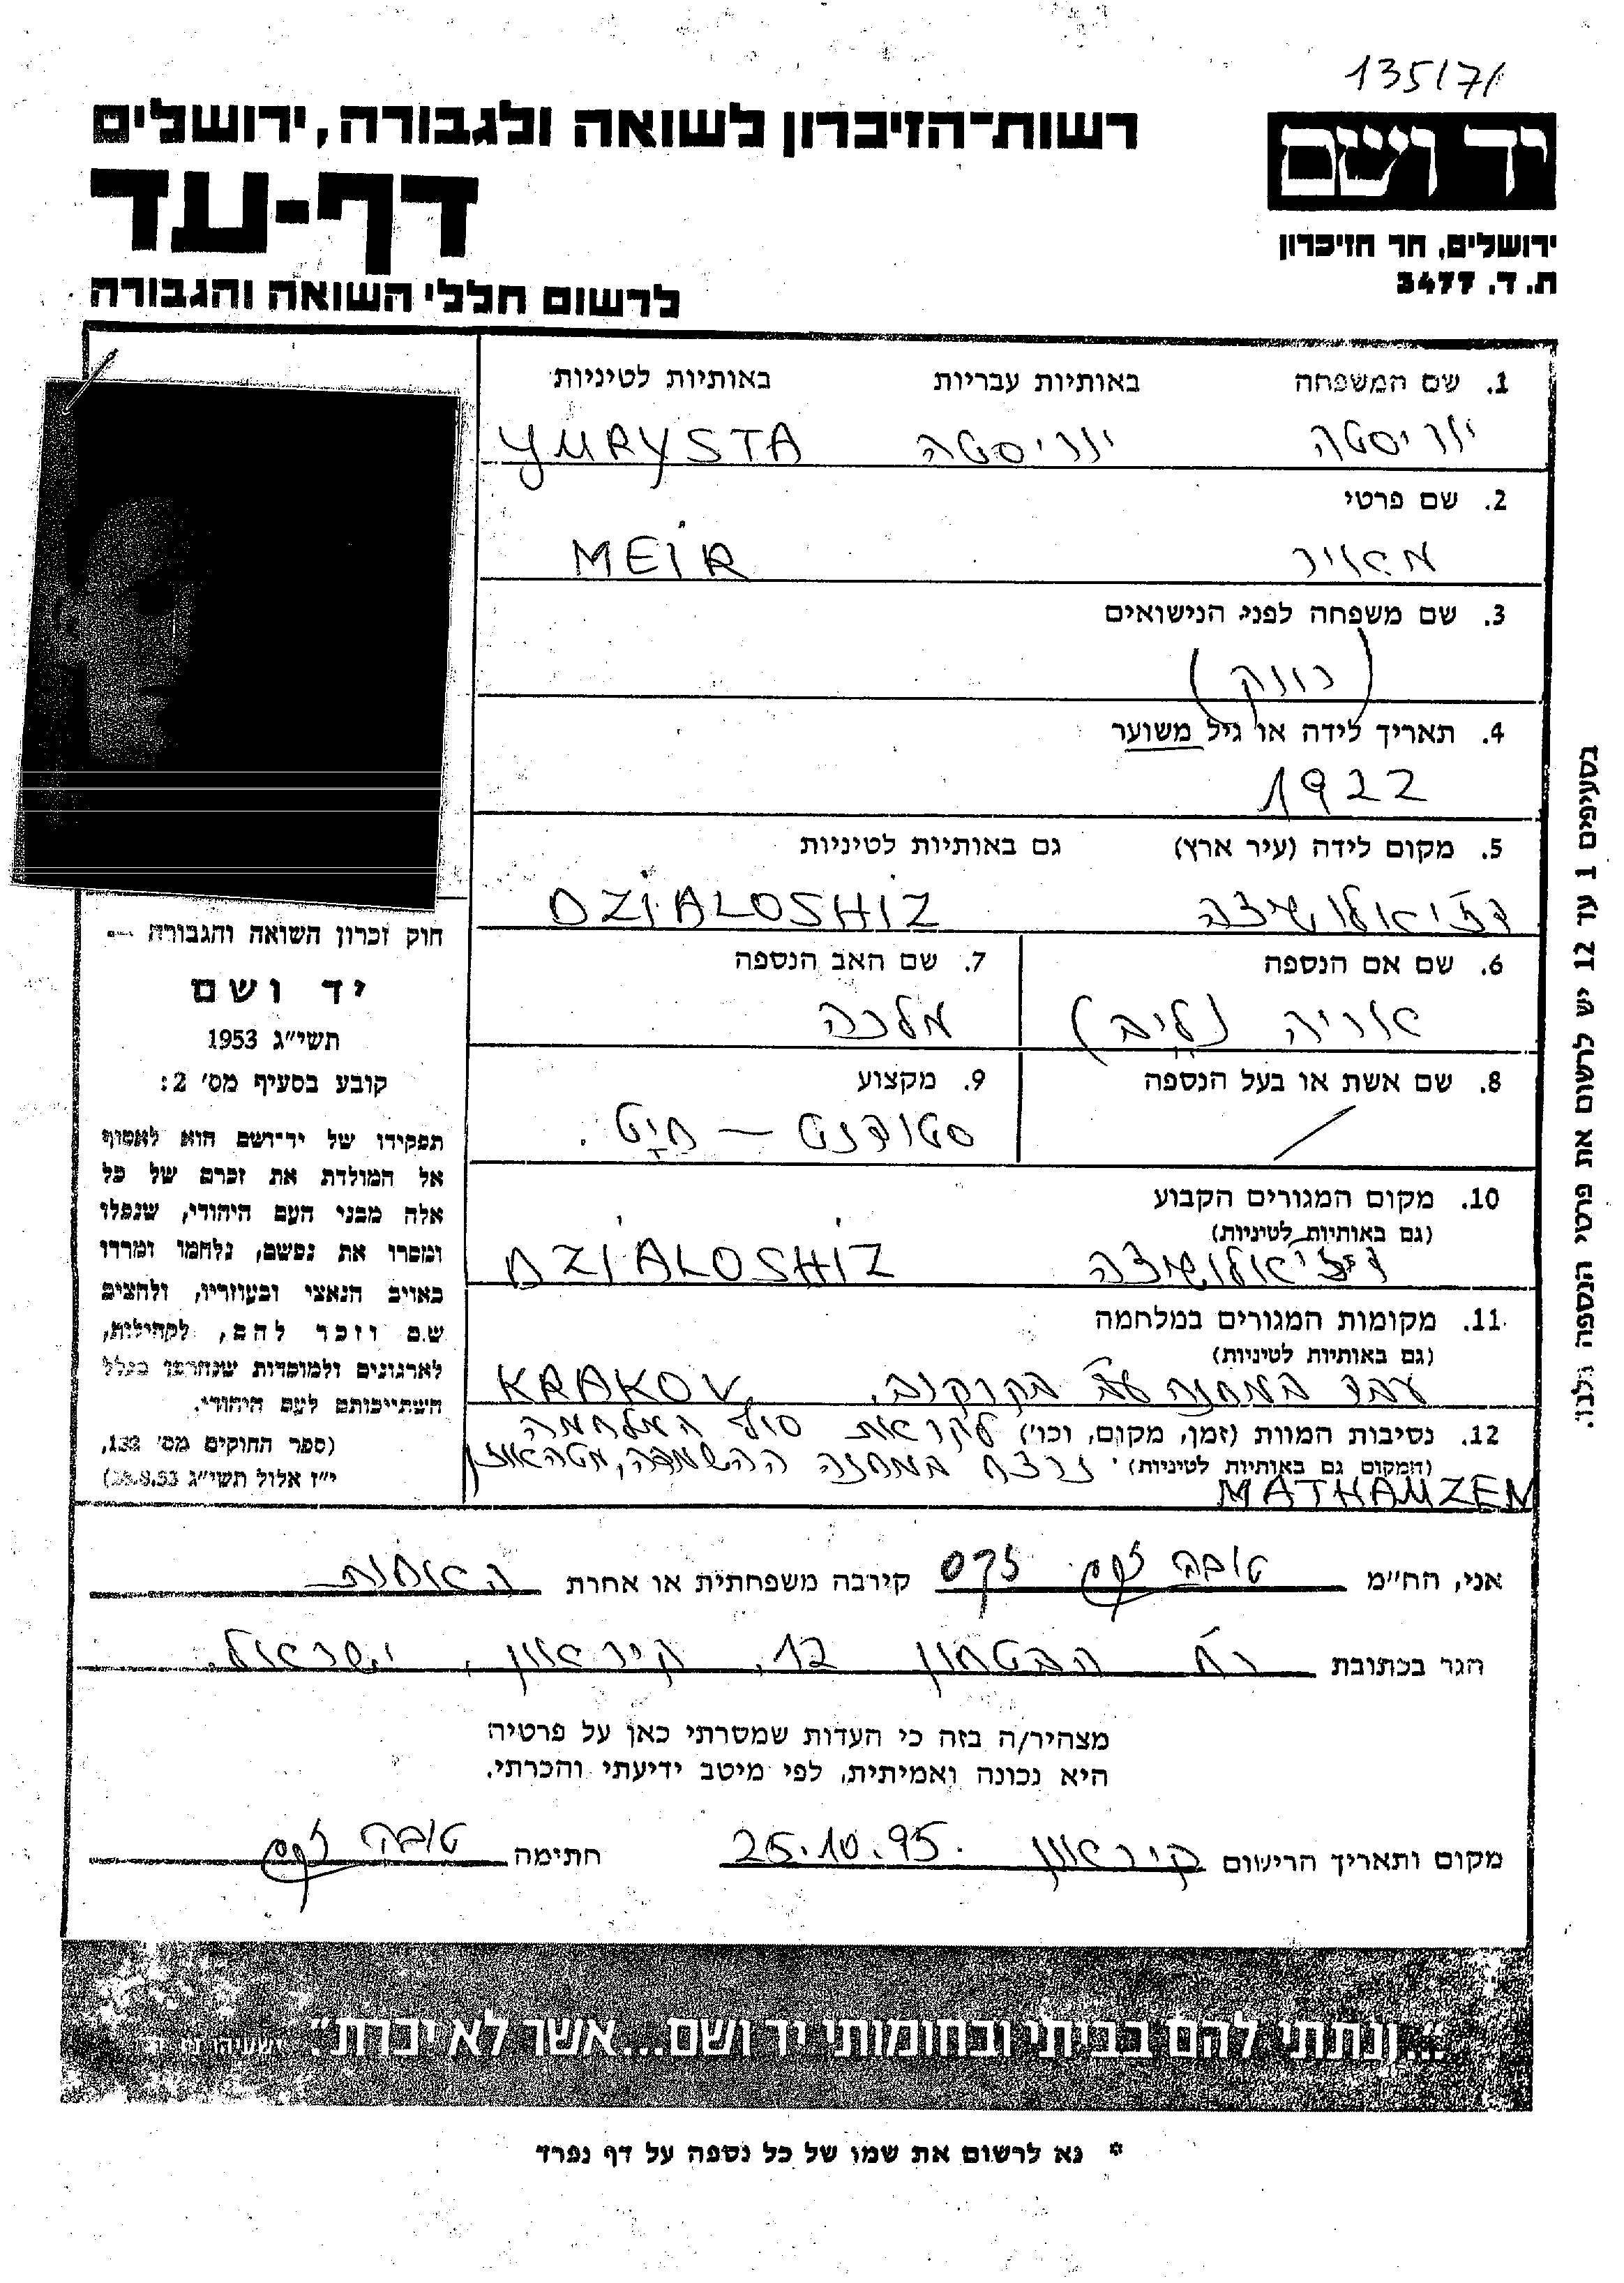 135171
רשות-הזיכרון לשואה ולגבורה, ירושלים
דף-עד
לרשום חללי השואה והגבורה
יד ושם
ירושלים, הר הזיכרון
ת. ד. 3477
1. שם המשפחה באותיות עבריות באותיות לטיניות
יוריסטה יוריסטה YURYSTA
2. שם פרטי
מאיר MEIR
3. שם משפחה לפני הנישואים
(רווק)
4. תאריך לידה או גיל משוער
1922
5. מקום לידה (עיר ארץ) גם באותיות לטיניות
דז'יאלושיצה DZIALOSHIZ
6. שם אם הנספה 7. שם האב הנספה
אריה (ליב) מלכה
8. שם אשת או בעל הנספה 9. מקצוע
/ סטודנט – חיט.
10. מקום המגורים הקבוע
(גם באותיות לטיניות)
דז'יאלושיצה DZIALOSHIZ
11. מקומות המגורים במלחמה
(גם באותיות לטיניות)
עבד במחנה בקרקוב, KRAKOV
12. נסיבות המוות (זמן, מקום, וכו') לקראת סוף המלחמה
(המקום גם באותיות לטיניות) נרצח במחנה ההשמדה, מטהאוזן
MATHAUZEN
חוק זכרון השואה והגבורה —
יד ושם
תשי״ג 1953
קובע בסעיף מס׳ 2:
תפקידו של יד-ושם הוא לאסוף
אל המולדת את זכרם של כל
אלה מבני העם היהודי, שנפלו
ומסרו את נפשם, נלחמו ומרדו
באויב הנאצי ובעוזריו, ולהציב
שם וזכר להם, לקהילות,
לארגונים ולמוסדות שנחרבו בגלל
השתייכותם לעם היהודי.
(ספר החוקים מס׳ 132,
י״ז אלול תשי״ג 28.8.53)
בסעיפים 1 עד 12 יש לרשום את פרטי הנספה הלבו.
אני, הח״מ טובה זקס קירבה משפחתית או אחרת האחות
הגר בכתובת רח הבטחון 12, קיראון, ישראל.
מצהיר/ה בזה כי העדות שמסרתי כאן על פרטיה
היא נכונה ואמיתית, לפי מיטב ידיעתי והכרתי.
מקום ותאריך הרישום קיראון 25.10.95. חתימה טובה זקס
״...ונתתי להם בביתי ובחומותי יד ושם...אשר לא יכרת״.
* נא לרשום את שמו של כל נספה על דף נפרד